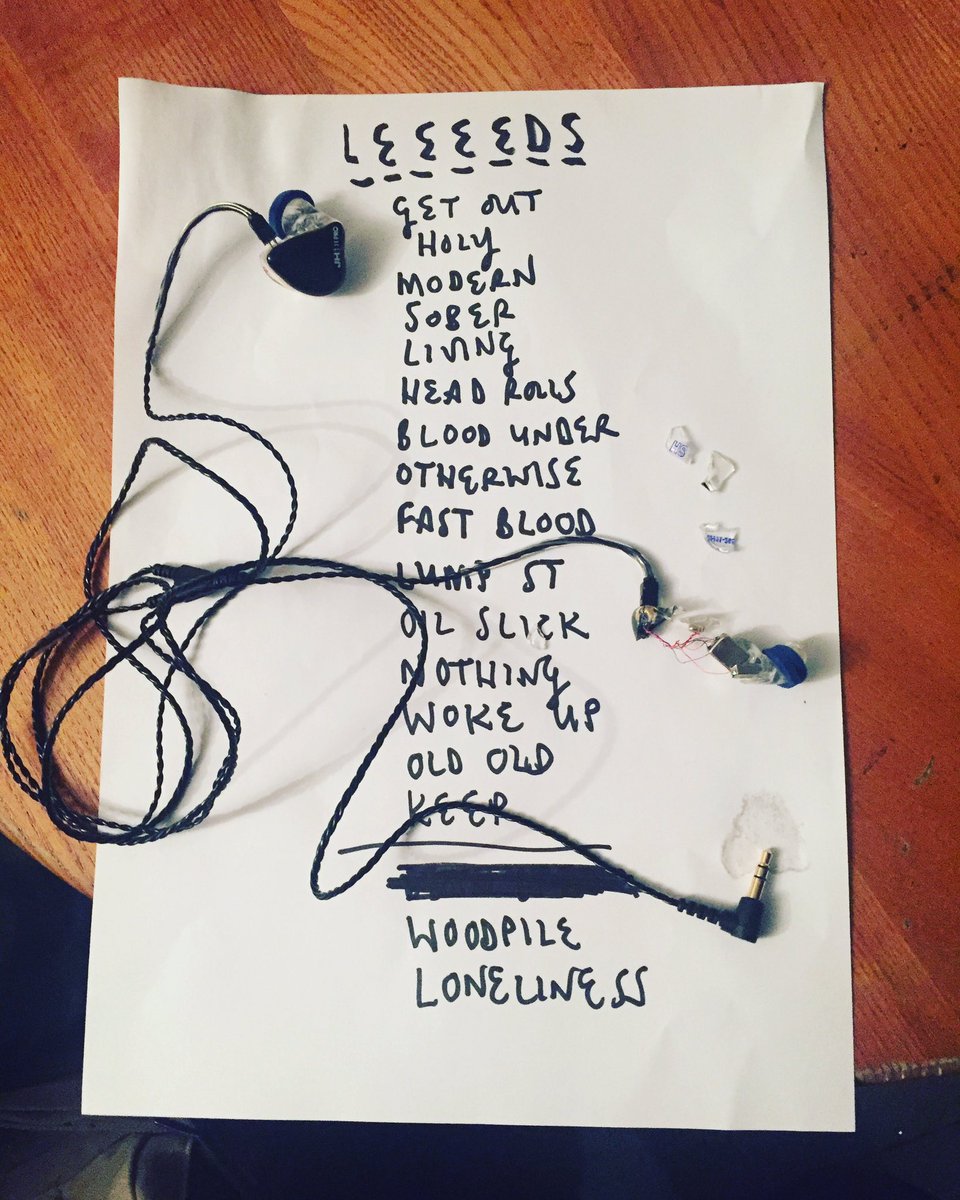 LEEEEDS
GET OUT
HOLY
MODERN
SOBER
LIVING
HEAD ROLLS
BLOOD UNDER
OTHERWISE
FAST BLOOD
LUMP ST
OIL SLICK
NOTHING
WOKE UP
OLD OLD
KEEP
WOODPILE
LONELINESS